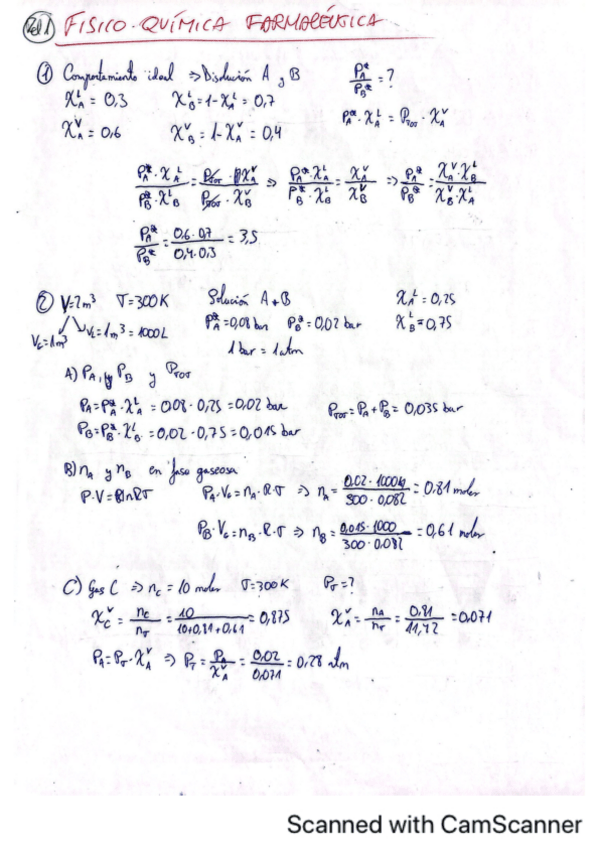 Rel 1 FÍSICO-QUÍMICA FARMACÉUTICA
① Comportamiento ideal ⇒ Disolución A y B P_A*/P_B* = ?
X_A^L = 0,3 X_B^L = 1-X_A^L = 0,7
X_A^V = 0,6 X_B^V = 1-X_A^V = 0,4 P_A*·X_A^L = P_TOT·X_A^V
P_A*·X_A^L/P_B*·X_B^L = P_TOT·X_A^V/P_TOT·X_B^V ⇒ P_A*·X_A^L/P_B*·X_B^L = X_A^V/X_B^V ⇒ P_A*/P_B* = X_A^V·X_B^L/X_B^V·X_A^L
P_A*/P_B* = 0,6·0,7/0,4·0,3 = 3,5
② V=2m³ T=300K Solución A+B X_A^L = 0,25
V_G=1m³ V_L=1m³=1000L P_A*=0,08 bar P_B*=0,02 bar X_B^L=0,75
1 bar = 1 atm
A) P_A, P_B y P_TOT
P_A=P_A*·X_A^L = 0,08·0,25=0,02 bar P_TOT=P_A+P_B=0,035 bar
P_B=P_B*·X_B^L = 0,02·0,75=0,015 bar
B) n_A y n_B en fase gaseosa
P·V=nRT P_A·V_G=n_A·R·T ⇒ n_A=0,02·1000/300·0,082=0,81 moles
P_B·V_G=n_B·R·T ⇒ n_B=0,015·1000/300·0,082=0,61 moles
C) Gas C ⇒ n_C=10 moles T=300K P_T=?
X_C^V=n_C/n_T=10/10+0,81+0,61=0,875 X_A^V=n_A/n_T=0,81/11,42=0,071
P_A=P_T·X_A^V ⇒ P_T=P_A/X_A^V=0,02/0,071=0,28 atm
Scanned with CamScanner